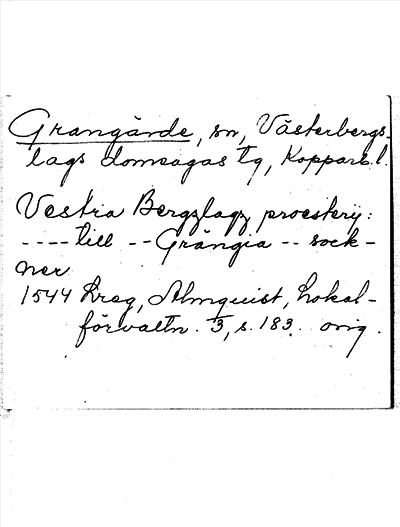 Grangärde, sn, Västerbergs-
lags domsagas tg, Kopparb.l.
Vestra Bergzlagz proesterij:
---- till -- Grängia -- sock-
ner
1544 Almquist, Lokal-
förvaltn. 3, s. 183. orig.